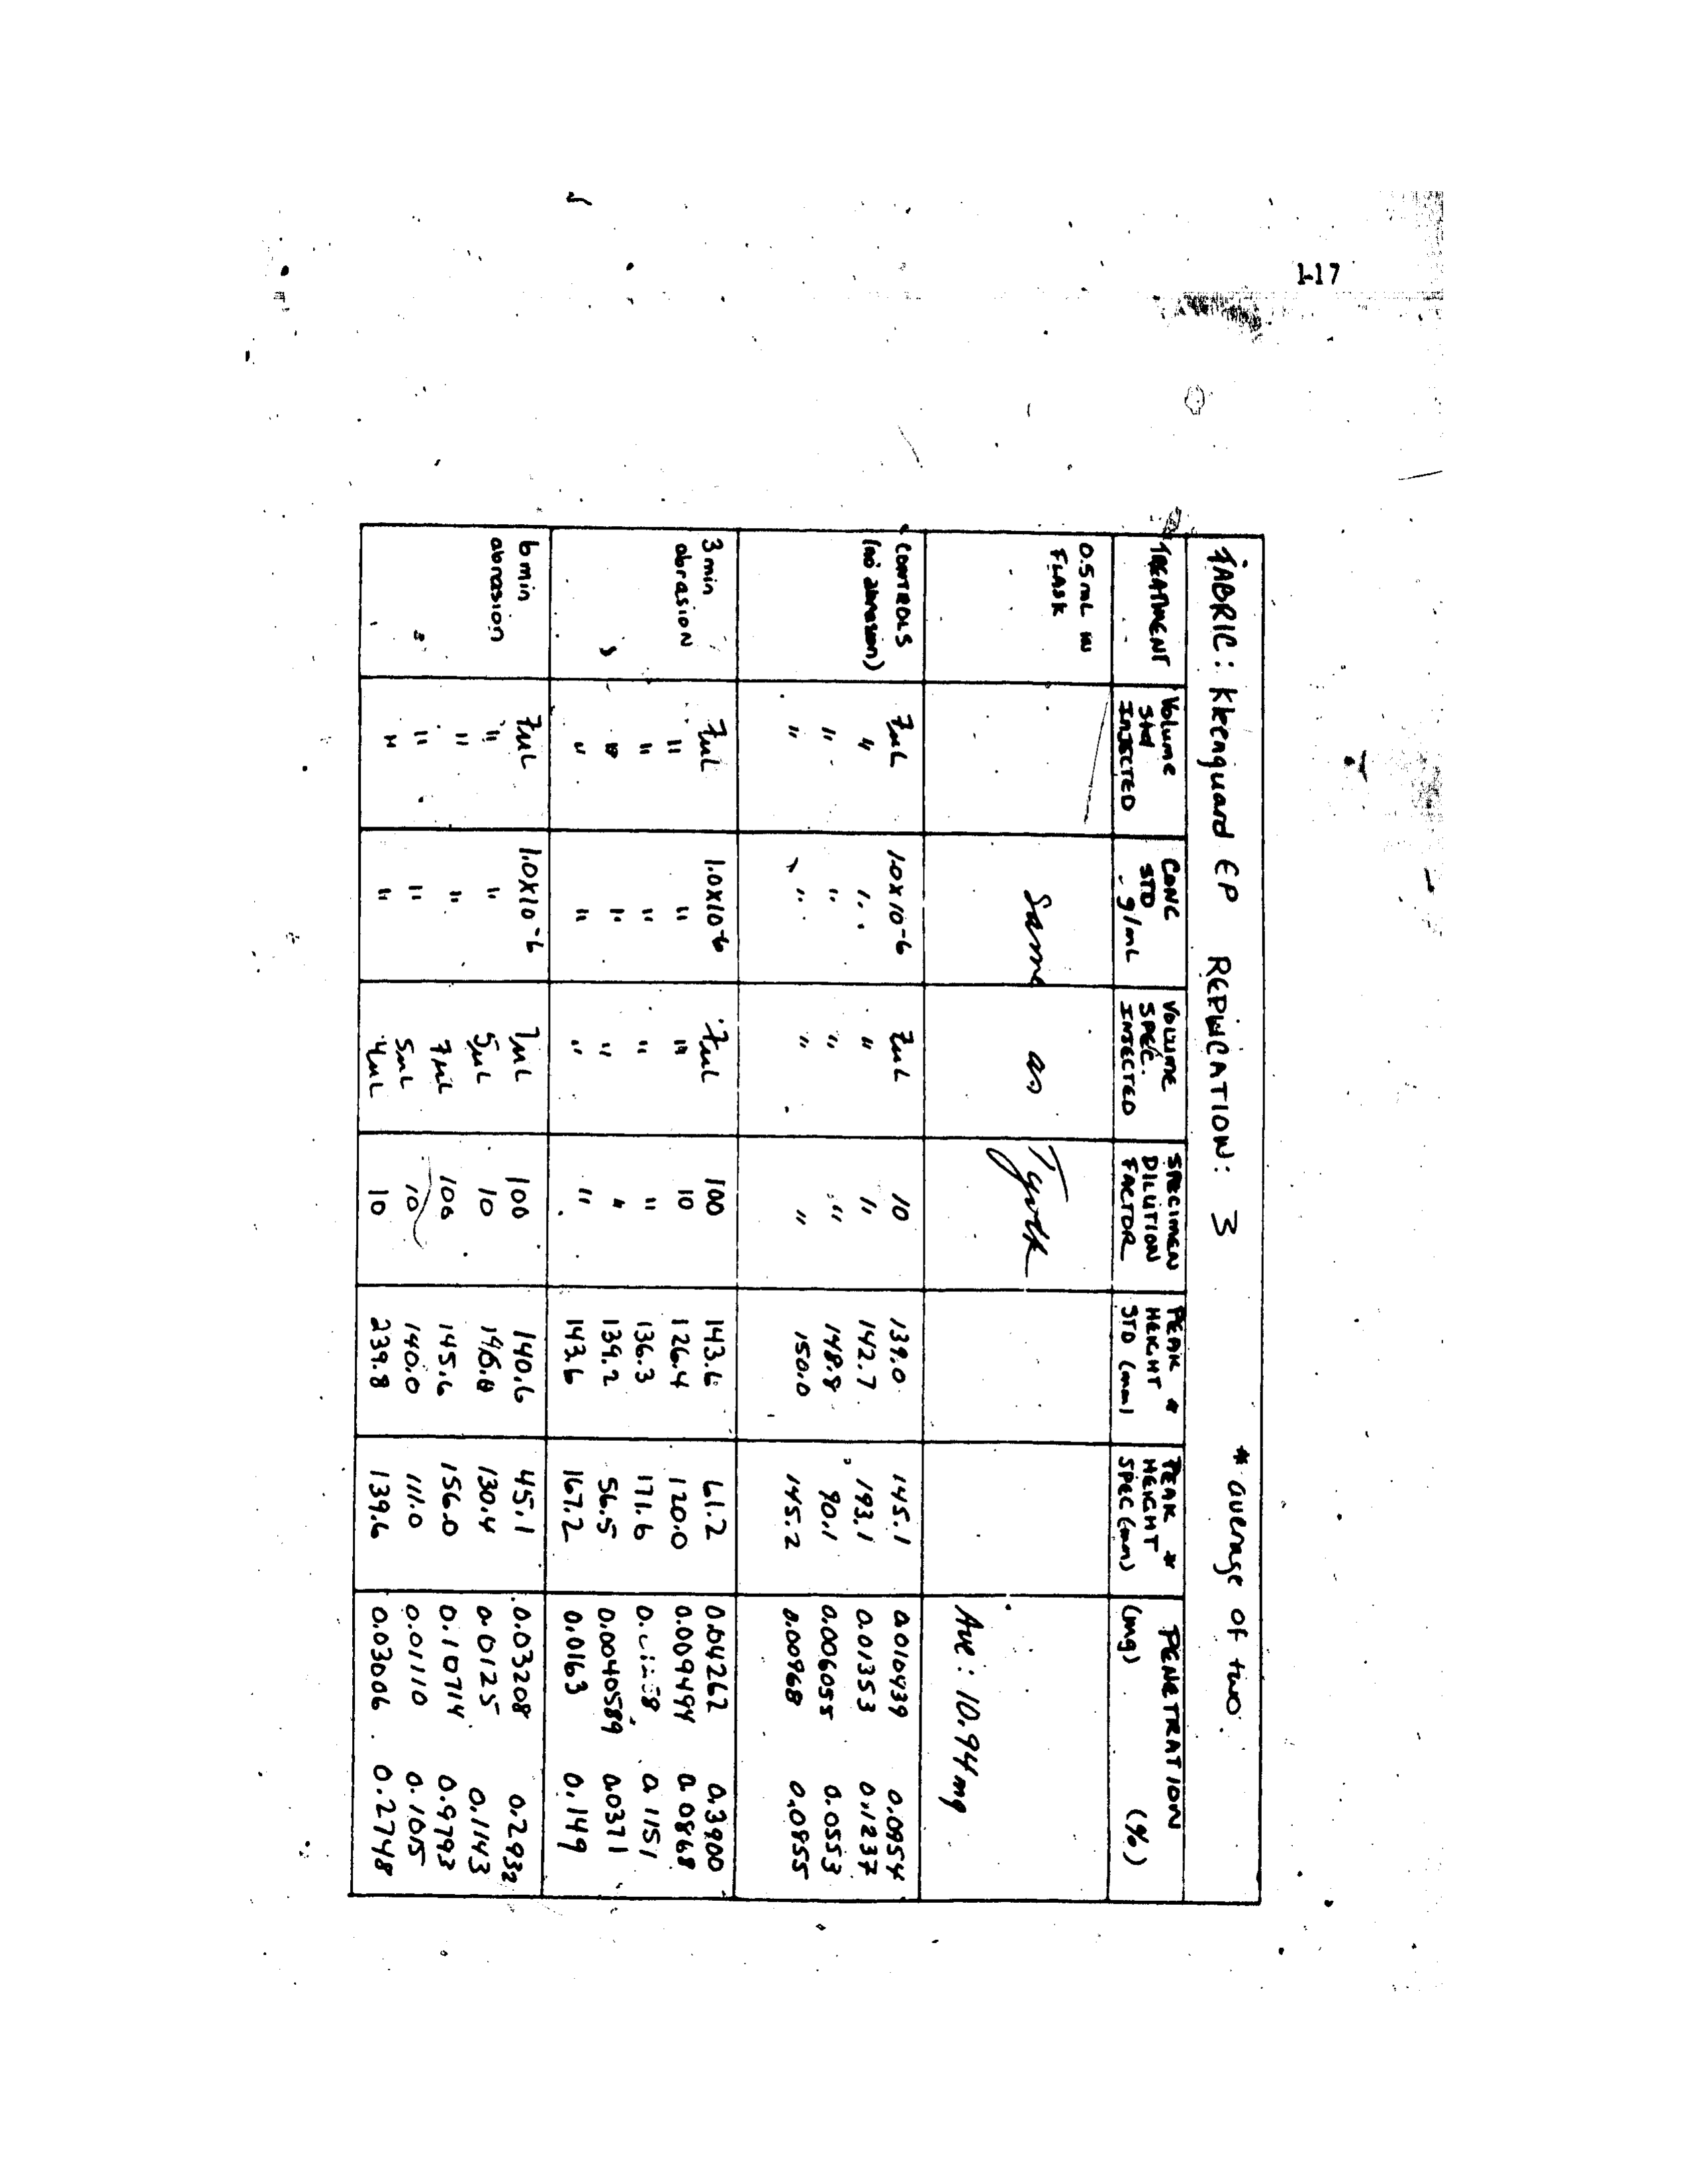 1-17
FABRIC: Kleenguard EP REPLICATION: 3 * average of two.
TREATMENT Volume Std INJECTED CONC STD g/mL VOLUME SPEC. INJECTED SPECIMEN DILUTION FACTOR PEAK * HEIGHT STD (mm) PEAK * HEIGHT SPEC (mm) PENETRATION (mg) (%)
0.5mL in FLASK Same as Tyvek Ave: 10.94mg
CONTROLS 7uL 1.0x10-6 7uL 10 139.0 145.1 0.010439 0.0954
(no abrasion) " " " " 142.7 193.1 0.01353 0.1237
" " " " 148.8 90.1 0.006055 0.0553
" " " " 150.0 145.2 0.00968 0.0955
3 min 7uL 1.0x10-6 7uL 100 143.6 61.2 0.04262 0.3900
abrasion " " " 10 126.4 120.0 0.009494 0.0868
" " " " 136.3 171.6 0.1151
" " " " 139.2 56.5 0.0040589 0.0371
" " " " 143.6 167.2 0.0163 0.149
6 min 7uL 1.0x10-6 7uL 100 140.6 45.1 0.03208 0.2932
abrasion " " 5uL 10 130.4 0.0125 0.1143
" " 7uL 100 145.6 156.0 0.10714 0.9793
" " 5uL 10 140.0 111.0 0.01110 0.1015
" " 4uL 10 239.8 139.6 0.03006 0.2748